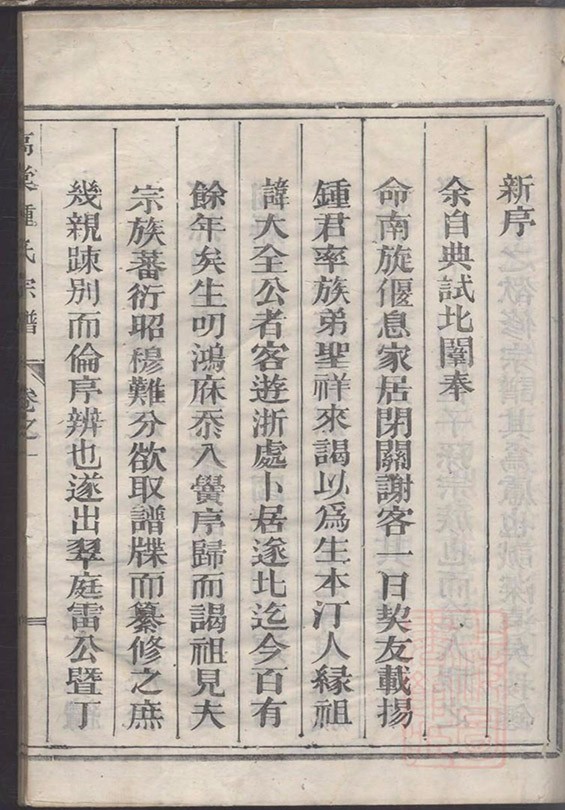 新序
余自典試北闈奉
命南旋偃息家居閉關謝客一日契友載揚
鍾君率族弟聖祥來謁以爲生本汀人緣祖
諱大全公者客遊浙處卜居遂比迄今百有
餘年矣生叨鴻庥忝入黌序歸而謁祖見夫
宗族蕃衍昭穆難分欲取譜牒而纂修之庶
幾親踈別而倫序辨也遂出翠庭雷公暨丁
鍾氏宗譜 卷之一